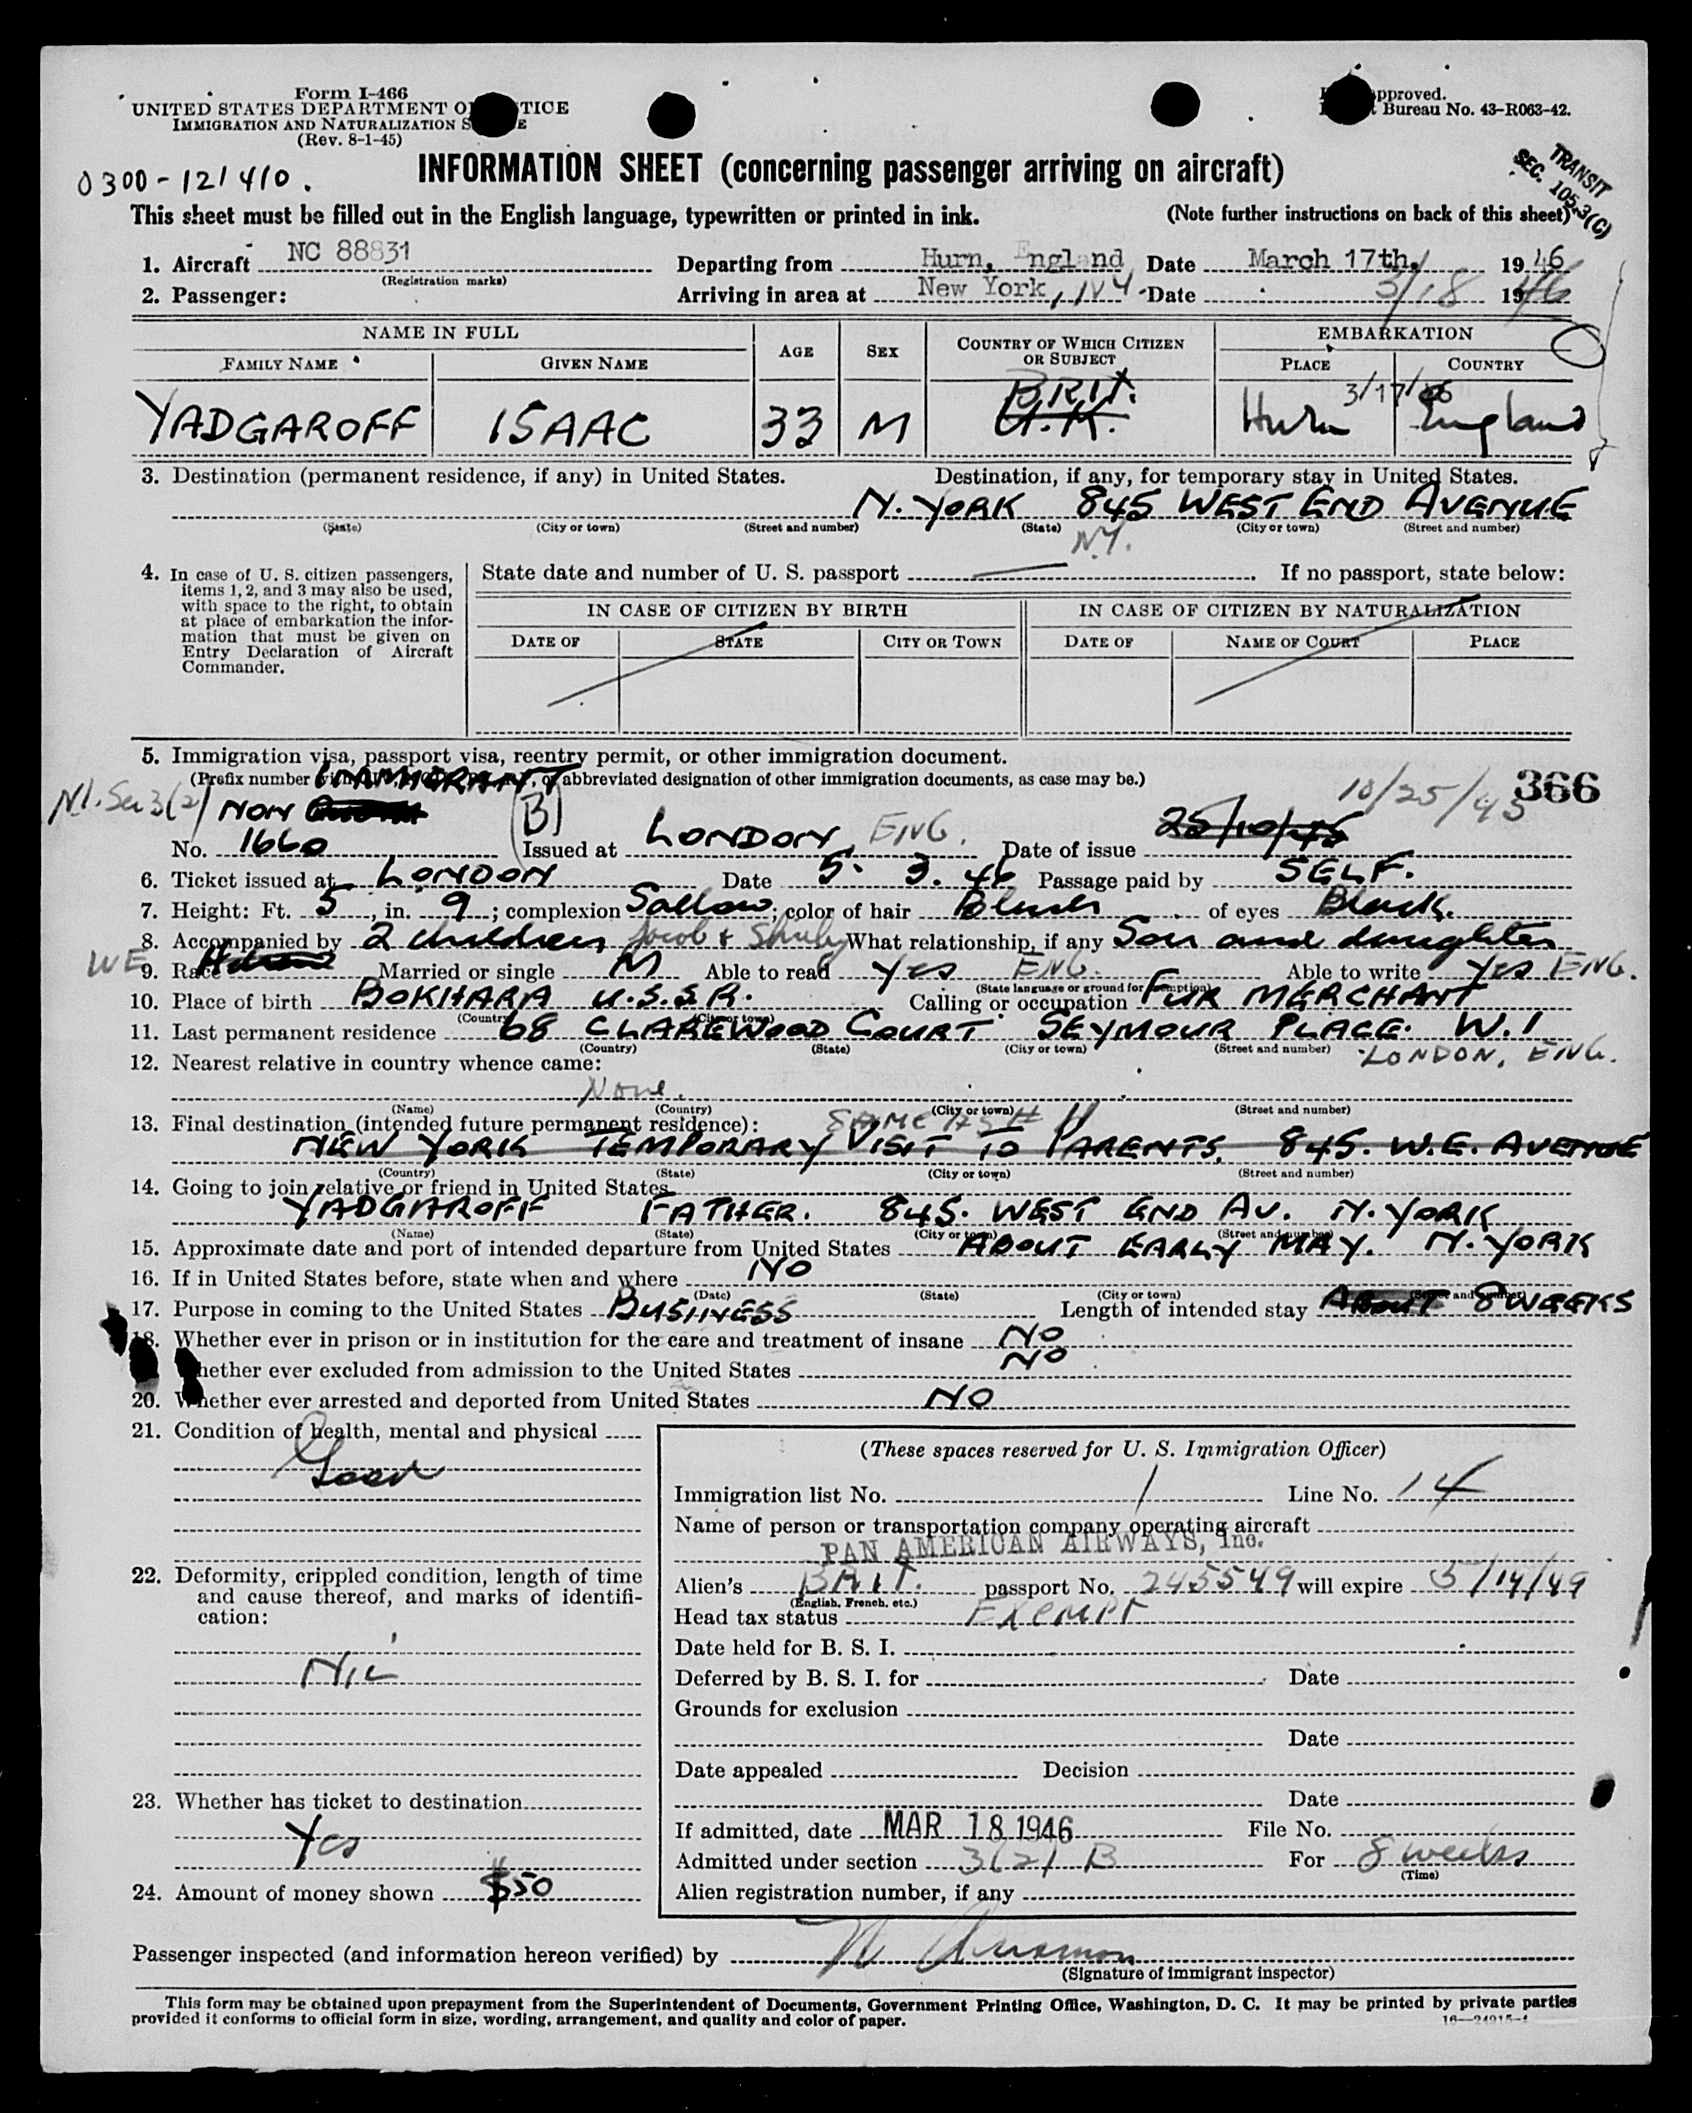 Form I-466
UNITED STATES DEPARTMENT OF JUSTICE
IMMIGRATION AND NATURALIZATION SERVICE
(Rev. 8-1-45)
approved.
Bureau No. 43-R063-42.
0300-121410.
INFORMATION SHEET (concerning passenger arriving on aircraft)
TRANSIT
SEC. 105.3(C)
This sheet must be filled out in the English language, typewritten or printed in ink. (Note further instructions on back of this sheet)
1. Aircraft NC 88831 (Registration marks) Departing from Hurn, England Date March 17th, 1946
2. Passenger: Arriving in area at New York, NY. Date 3/18 1946
NAME IN FULL EMBARKATION
FAMILY NAME GIVEN NAME AGE SEX COUNTRY OF WHICH CITIZEN OR SUBJECT PLACE COUNTRY
BRIT. 3/17/46
YADGAROFF ISAAC 33 M U.K. Hurn England
3. Destination (permanent residence, if any) in United States. Destination, if any, for temporary stay in United States.
N. YORK 845 WEST END AVENUE
(State) (City or town) (Street and number) (State) (City or town) (Street and number)
N.Y.
4. In case of U. S. citizen passengers, items 1, 2, and 3 may also be used, with space to the right, to obtain at place of embarkation the information that must be given on Entry Declaration of Aircraft Commander.
State date and number of U. S. passport If no passport, state below:
IN CASE OF CITIZEN BY BIRTH IN CASE OF CITIZEN BY NATURALIZATION
DATE OF STATE CITY OR TOWN DATE OF NAME OF COURT PLACE
5. Immigration visa, passport visa, reentry permit, or other immigration document.
(Prefix number abbreviated designation of other immigration documents, as case may be.)
366
NON IMMIGRANT (B) 10/25/45
No. 1660 Issued at LONDON, ENG. Date of issue 25/10/45
6. Ticket issued at LONDON Date 5. 3. 46 Passage paid by SELF.
7. Height: Ft. 5, in. 9; complexion Sallow; color of hair Black of eyes Black.
8. Accompanied by 2 children Jacob & What relationship, if any Son and daughter
WE
9. Race Married or single M Able to read Yes ENG. Able to write Yes ENG.
(State language or ground for exemption)
10. Place of birth BOKHARA U.S.S.R. Calling or occupation FUR MERCHANT
(Country) (City or town)
11. Last permanent residence 68 CLAREWOOD COURT. SEYMOUR PLACE. W.1
(Country) (State) (City or town) (Street and number) LONDON, ENG.
12. Nearest relative in country whence came:
None.
(Name) (Country) (City or town) (Street and number)
13. Final destination (intended future permanent residence): SAME AS # 11
NEW YORK TEMPORARY VISIT TO PARENTS. 845. W.E. AVENUE
(Country) (State) (City or town) (Street and number)
14. Going to join relative or friend in United States
YADGAROFF FATHER. 845. WEST END AV. N. YORK
(Name) (State) (City or town) (Street and number)
15. Approximate date and port of intended departure from United States ABOUT EARLY MAY. N. YORK
16. If in United States before, state when and where NO
(Date) (State) (City or town) (Street and number)
17. Purpose in coming to the United States BUSINESS Length of intended stay ABOUT 8 WEEKS
18. Whether ever in prison or in institution for the care and treatment of insane NO
Whether ever excluded from admission to the United States NO
20. Whether ever arrested and deported from United States NO
21. Condition of health, mental and physical
Good
22. Deformity, crippled condition, length of time and cause thereof, and marks of identification:
NIL
23. Whether has ticket to destination
Yes
24. Amount of money shown $50
(These spaces reserved for U. S. Immigration Officer)
Immigration list No. 1 Line No. 14
Name of person or transportation company operating aircraft
PAN AMERICAN AIRWAYS, Inc.
Alien's BRIT. passport No. 245549 will expire 5/14/49
(English, French, etc.)
Head tax status EXEMPT
Date held for B. S. I.
Deferred by B. S. I. for Date
Grounds for exclusion
Date
Date appealed Decision
Date
If admitted, date MAR 18 1946 File No.
Admitted under section 3(2) B For 8 weeks
(Time)
Alien registration number, if any
Passenger inspected (and information hereon verified) by
(Signature of immigrant inspector)
This form may be obtained upon prepayment from the Superintendent of Documents, Government Printing Office, Washington, D. C. It may be printed by private parties
provided it conforms to official form in size, wording, arrangement, and quality and color of paper.
16—24915-1